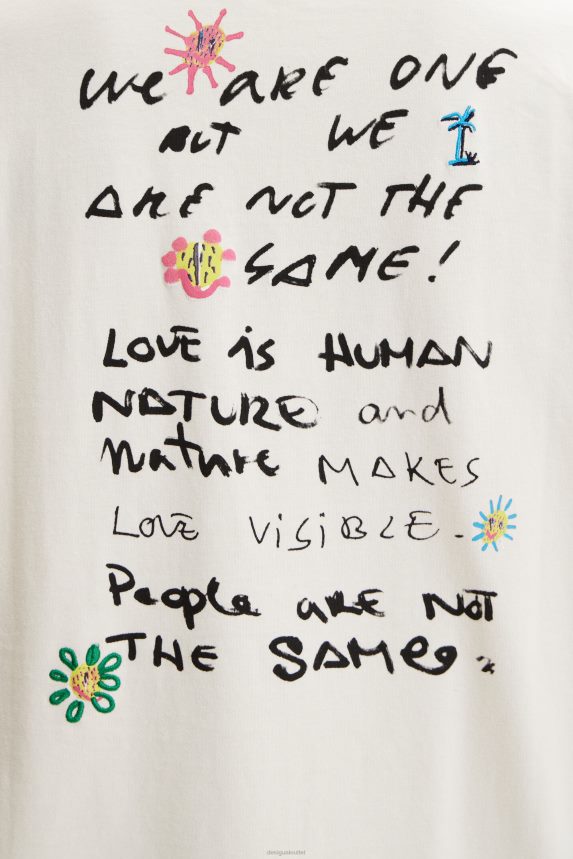 We ARE ONE
BUT WE
ARE NOT THE
SAME!
LOVE iS HUMAN
NATURE and
Nature MAKES
LOVE ViSiBLE.
People aRE NOT
THE SAMe.
desigualoutlet